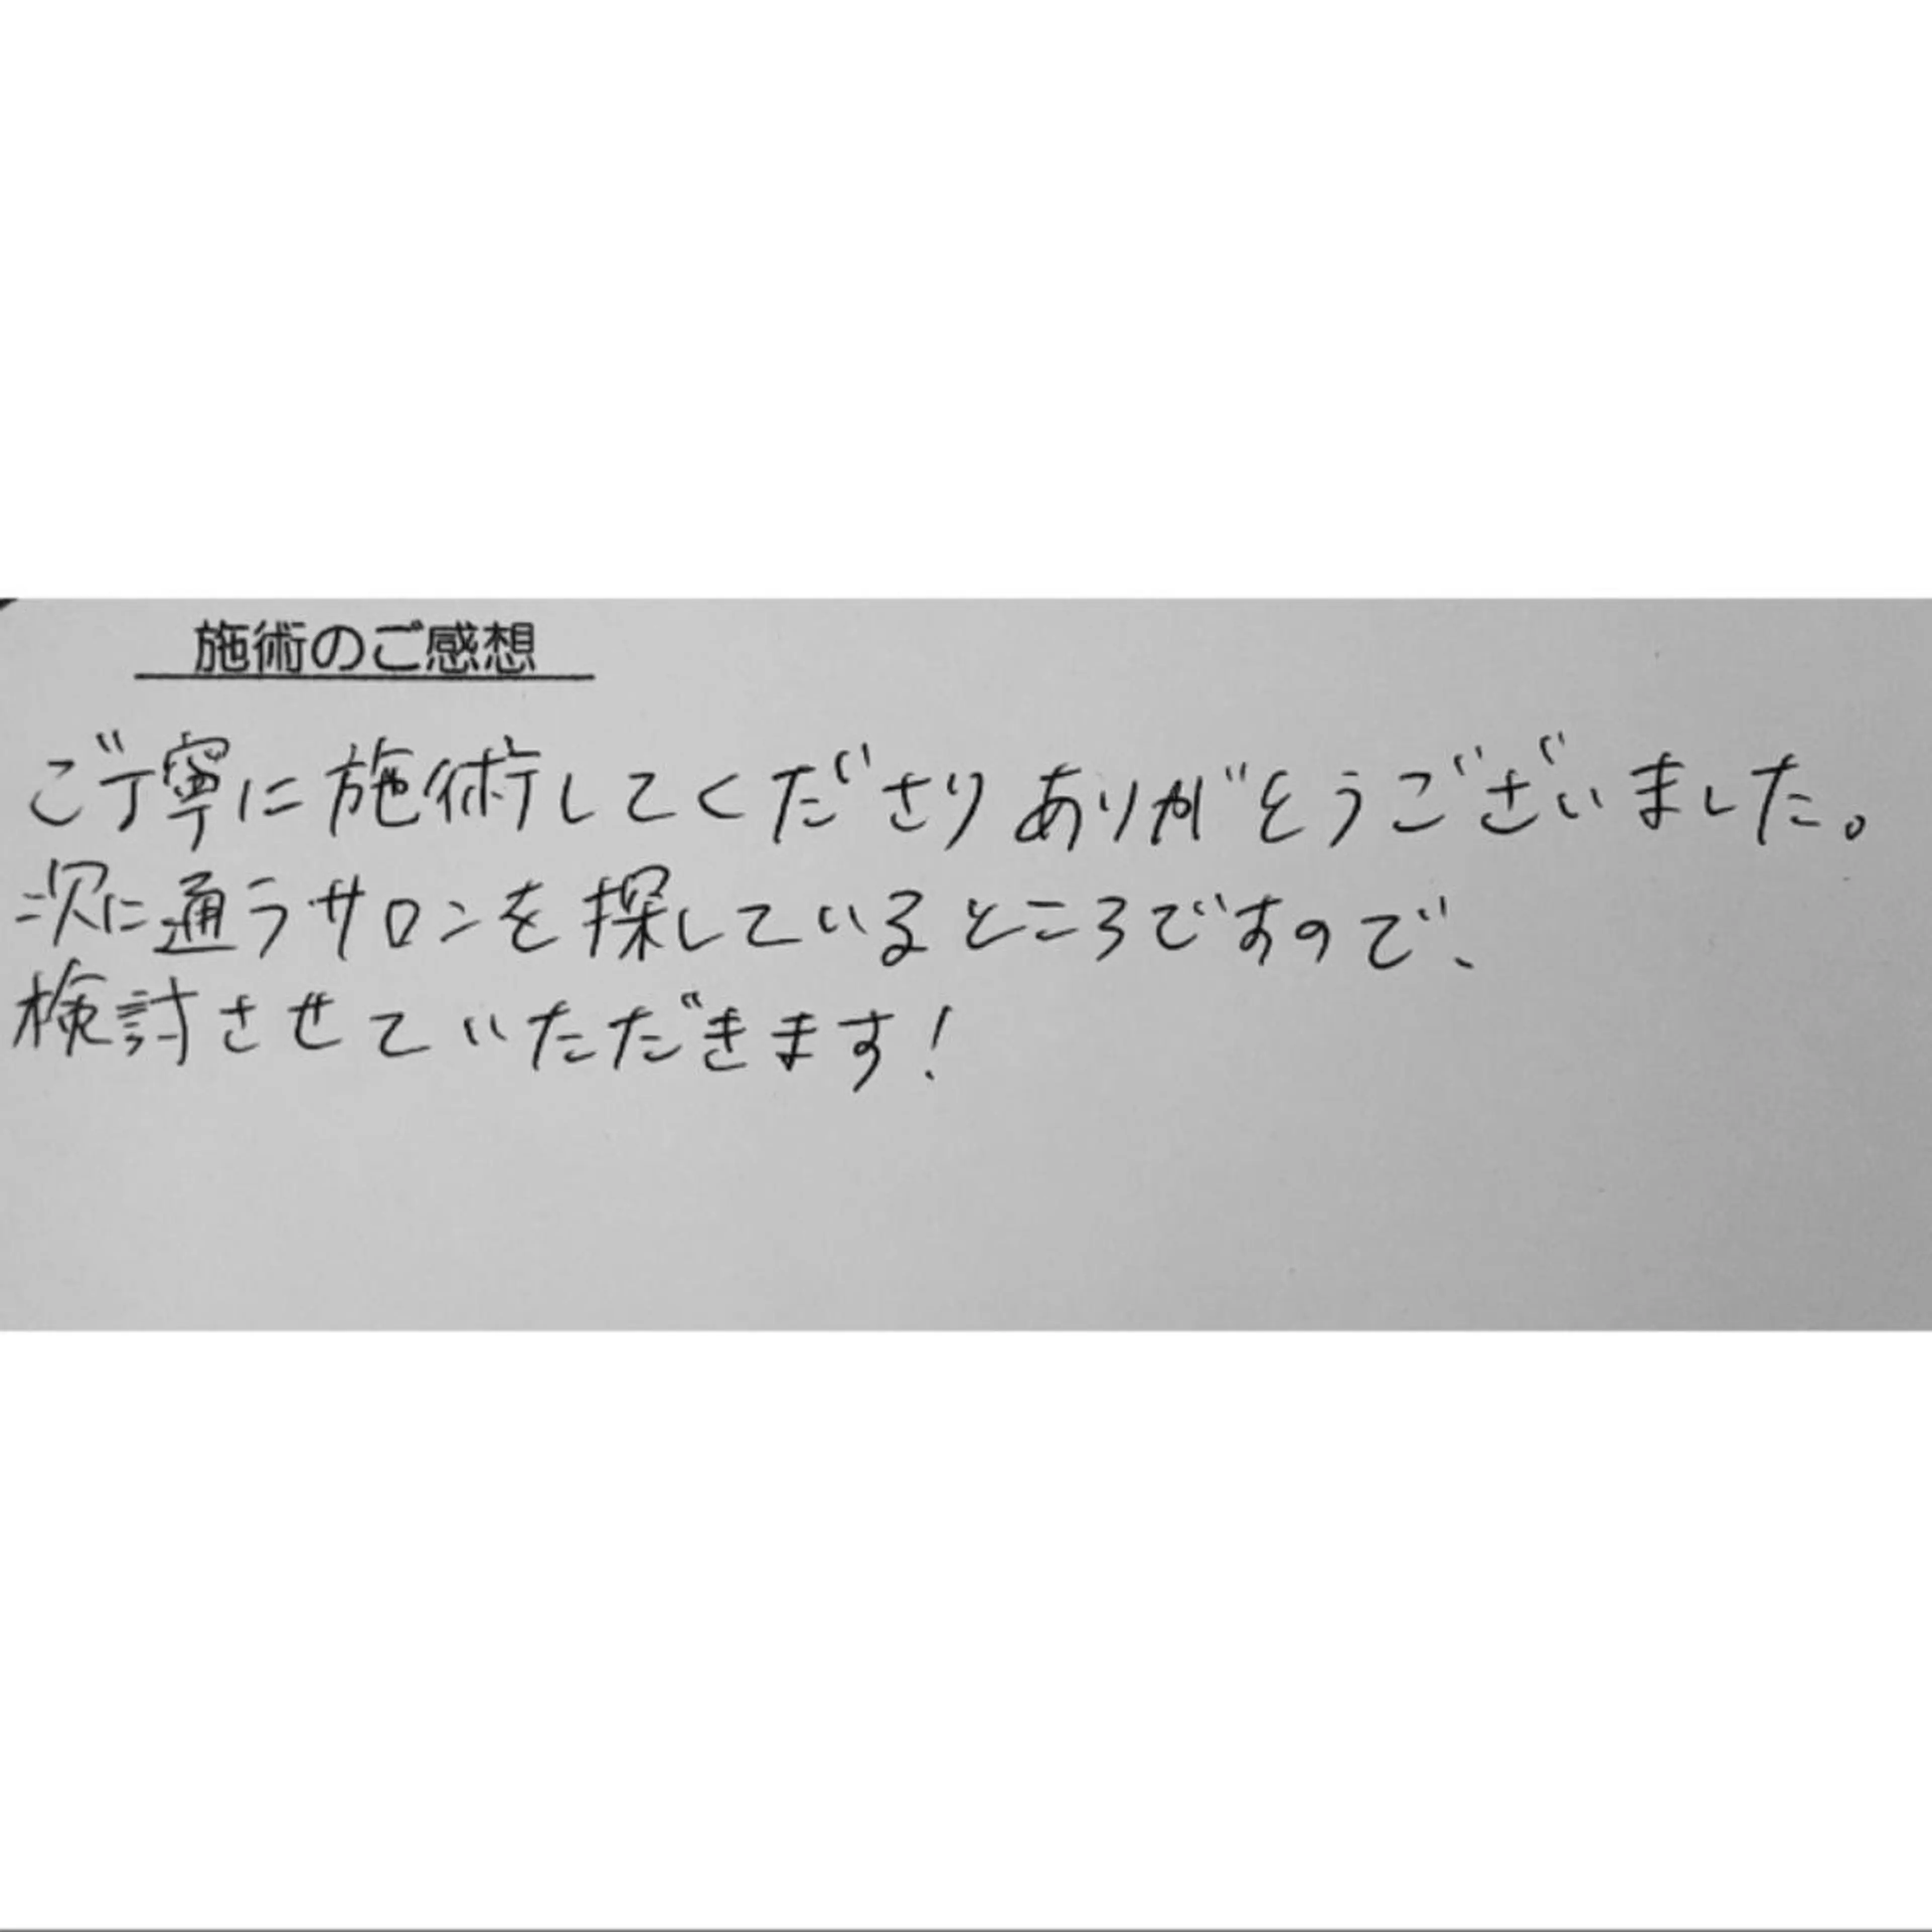 施術のご感想
ご丁寧に施術してくださりありがとうございました。
次に通うサロンを探しているところですので、
検討させていただきます!